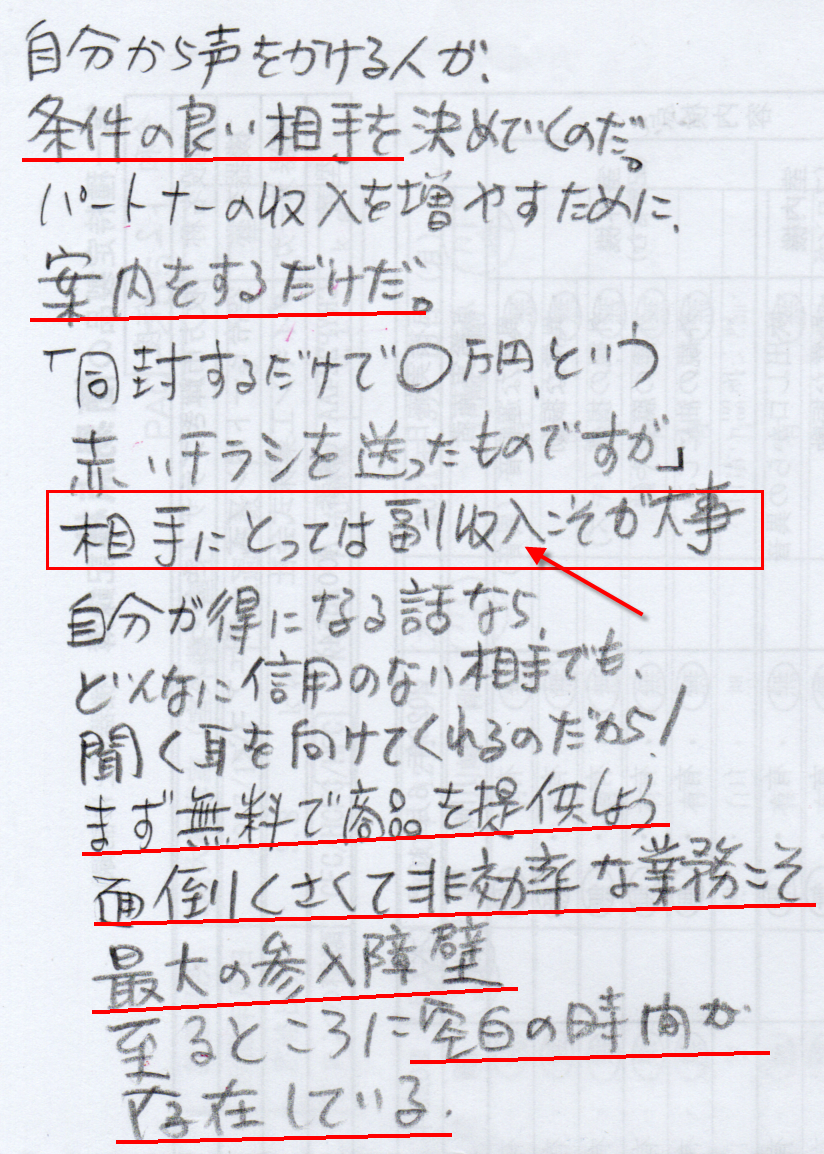 自分から声をかける人が、
条件の良い相手を決めていくのだ。
パートナーの収入を増やすために、
案内をするだけだ。
「同封するだけで〇万円、という
赤いチラシを送ったものですが」
相手にとっては副収入こそが大事
自分が得になる話なら、
どんなに信用のない相手でも、
聞く耳を向けてくれるのだから！
まず無料で商品を提供しよう
面倒くさくて非効率な業務こそ
最大の参入障壁
至るところに空白の時間が
存在している.